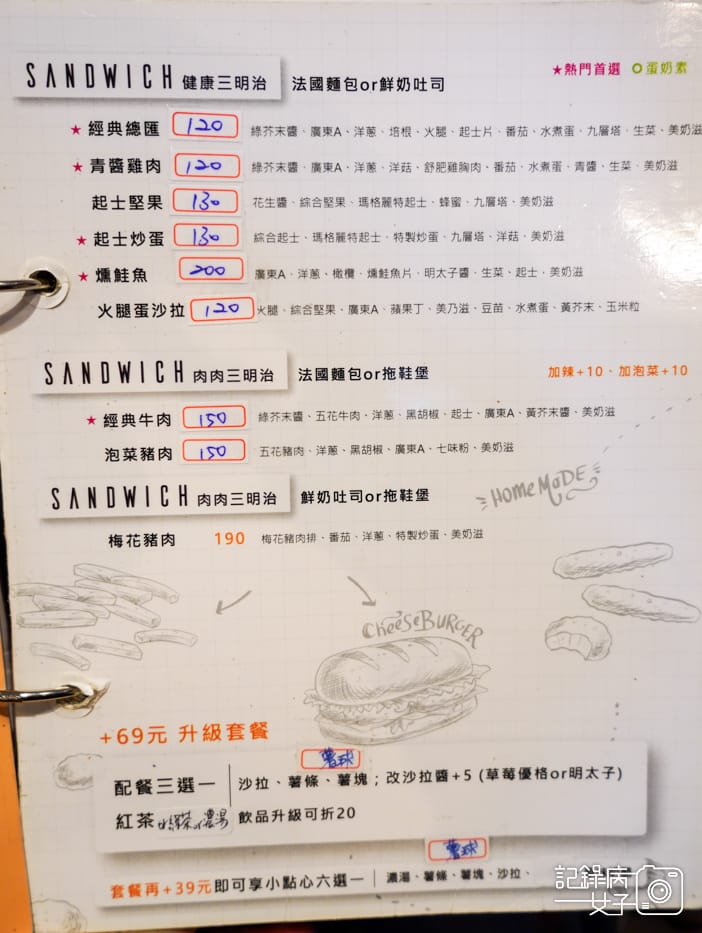 SANDWICH 健康三明治 法國麵包or鮮奶吐司 ★熱門首選 O蛋奶素
★ 經典總匯 120 綠芥末醬、廣東A、洋蔥、培根、火腿、起士片、番茄、水煮蛋、九層塔、生菜、美奶滋
★ 青醬雞肉 120 綠芥末醬、廣東A、洋蔥、洋菇、舒肥雞胸肉、番茄、水煮蛋、青醬、生菜、美奶滋
起士堅果 130 花生醬、綜合堅果、瑪格麗特起士、蜂蜜、九層塔、美奶滋
★ 起士炒蛋 130 綜合起士、瑪格麗特起士、特製炒蛋、九層塔、洋菇、美奶滋
★ 燻鮭魚 200 廣東A、洋蔥、橄欖、燻鮭魚片、明太子醬、生菜、起士、美奶滋
火腿蛋沙拉 120 火腿、綜合堅果、廣東A、蘋果丁、美乃滋、豆苗、水煮蛋、黃芥末、玉米粒
SANDWICH 肉肉三明治 法國麵包or拖鞋堡 加辣+10、加泡菜+10
★ 經典牛肉 150 綠芥末醬、五花牛肉、洋蔥、黑胡椒、起士、廣東A、黃芥末醬、美奶滋
泡菜豬肉 150 五花豬肉、洋蔥、黑胡椒、廣東A、七味粉、美奶滋
SANDWICH 肉肉三明治 鮮奶吐司or拖鞋堡
HOMEMADE
梅花豬肉 190 梅花豬肉排、番茄、洋蔥、特製炒蛋、美奶滋
CheeSeBURGER
+69元 升級套餐
薯球
配餐三選一 沙拉、薯條、薯塊；改沙拉醬+5 (草莓優格or明太子)
紅茶 or濃湯 飲品升級可折20
薯球
套餐再+39元即可享小點心六選一 濃湯、薯條、薯塊、沙拉、
記錄病
女子